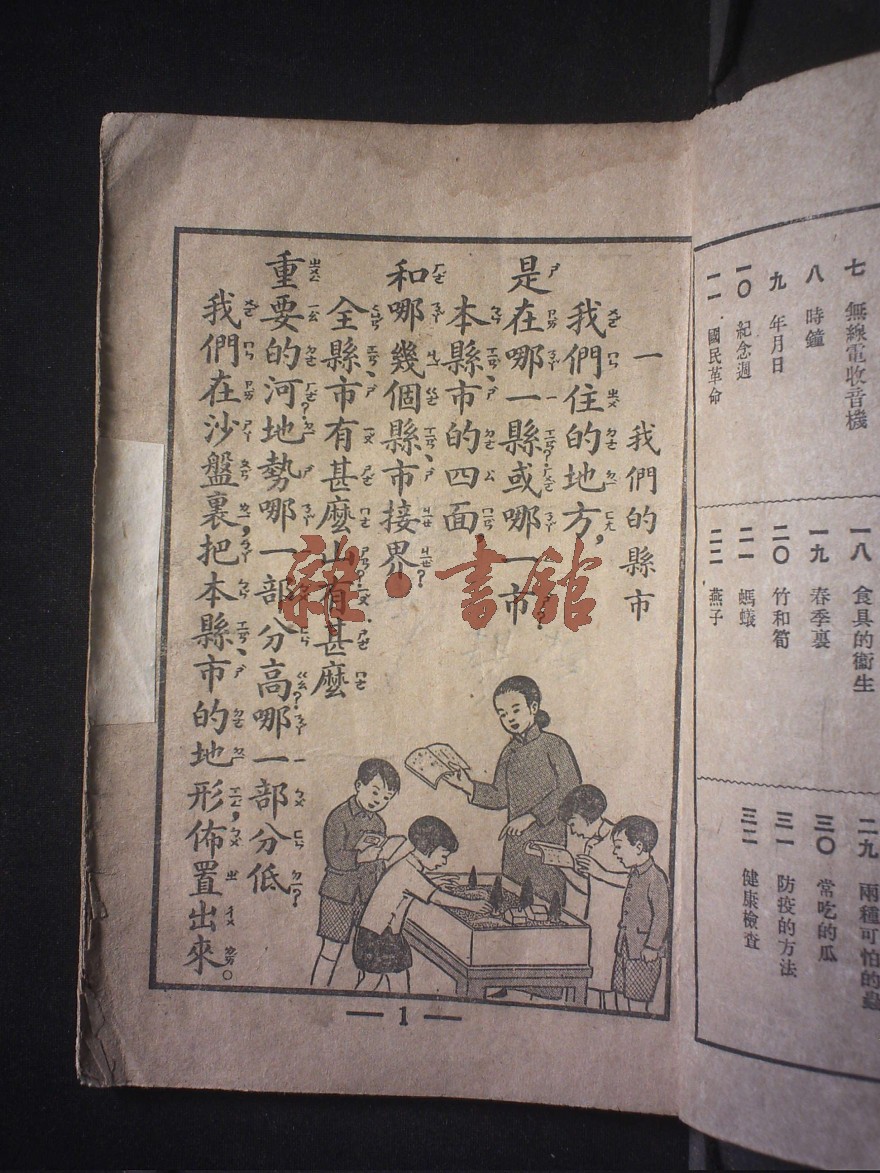 七　無線電收音機
八　時鐘
九　年月日
一〇　紀念週
一一　國民革命
一八　食具的衞生
一九　春季裏
二〇　竹和筍
二一　螞蟻
二二　燕子
二九　兩種可怕的蟲
三〇　常吃的瓜
三一　防疫的方法
三二　健康檢查
一　我們的縣市
我們住的地方，
是在哪一縣或哪一市？
本縣市的四面，
和哪幾個縣市接界？
全縣市有甚麼山？有甚麼
重要的河？地勢哪一部分高？哪一部分低？
我們在沙盤裏，把本縣市的地形，佈置出來。
— 1 —
雜·書館